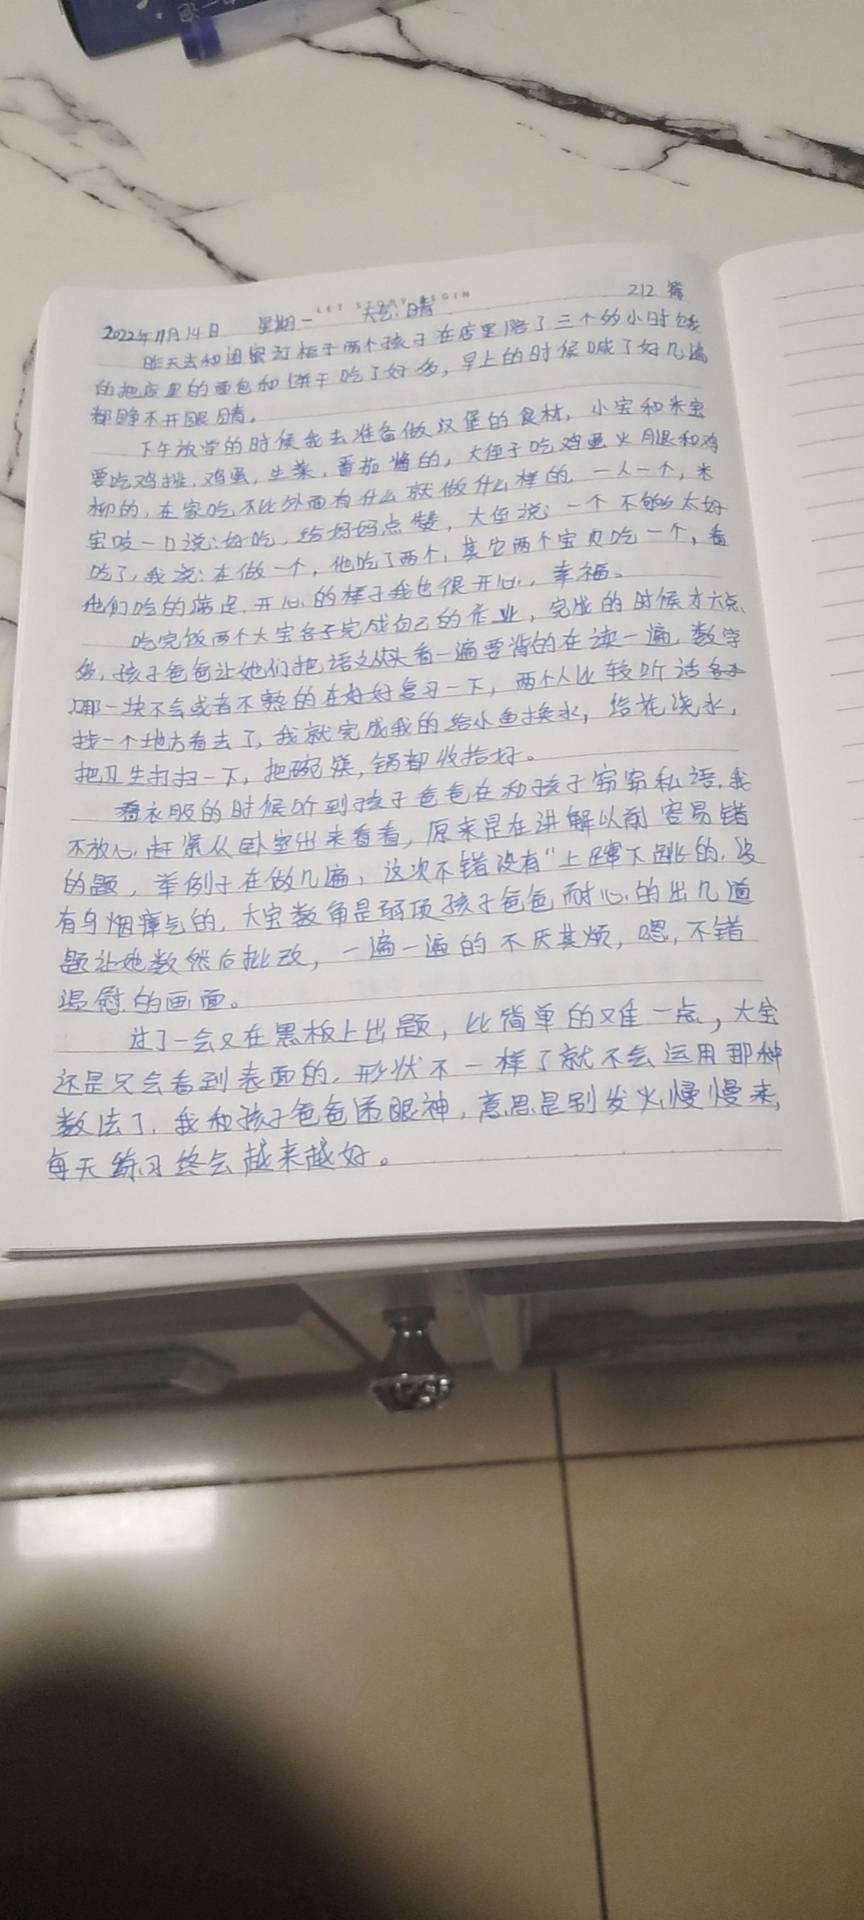 LET STORY BEGIN
212篇
2022年11月14日 星期一 天气:晴
昨天去和闺蜜订柜子两个孩子在店里陪了三个多小时饿
的把店里的面包和饼干吃了好多,早上的时候喊了好几遍
都睁不开眼睛。
下午放学的时候我去准备做汉堡的食材,小宝和米宝
要吃鸡排,鸡蛋,生菜,番茄酱的,大侄子吃鸡蛋火腿和鸡
柳的,在家吃不比外面有什么就做什么样的,一人一个,米
宝咬一口说:好吃,给妈妈点赞,大侄说:一个不够太好
吃了,我说:在做一个,他吃了两个,其它两个宝贝吃一个,看
他们吃的满足,开心的样子我也很开心,幸福。
吃完饭两个大宝各子完成自己的作业,完成的时候才六点
多,孩子爸爸让她们把语文从头看一遍要背的在读一遍,数学
哪一块不会或者不熟的在好好复习一下,两个人比较听话
找一个地方看去了,我就完成我的给小鱼换水,给花浇水,
把卫生打扫一下,把碗筷,锅都收拾好。
叠衣服的时候听到孩子爸爸在和孩子窃窃私语,我
不放心,赶紧从卧室出来看看,原来是在讲解以前容易错
的题,举例子在做几遍,这次不错没有"上蹿下跳的,没
有乌烟瘴气的,大宝数角是弱项孩子爸爸耐心的出几道
题让她数然后批改,一遍一遍的不厌其烦,嗯,不错
温慰的画面。
过了一会又在黑板上出题,比简单的难一点,大宝
还是只会看到表面的,形状不一样了就不会运用那种
数法了,我和孩子爸爸递眼神,意思是别发火,慢慢来,
每天练习终会越来越好。